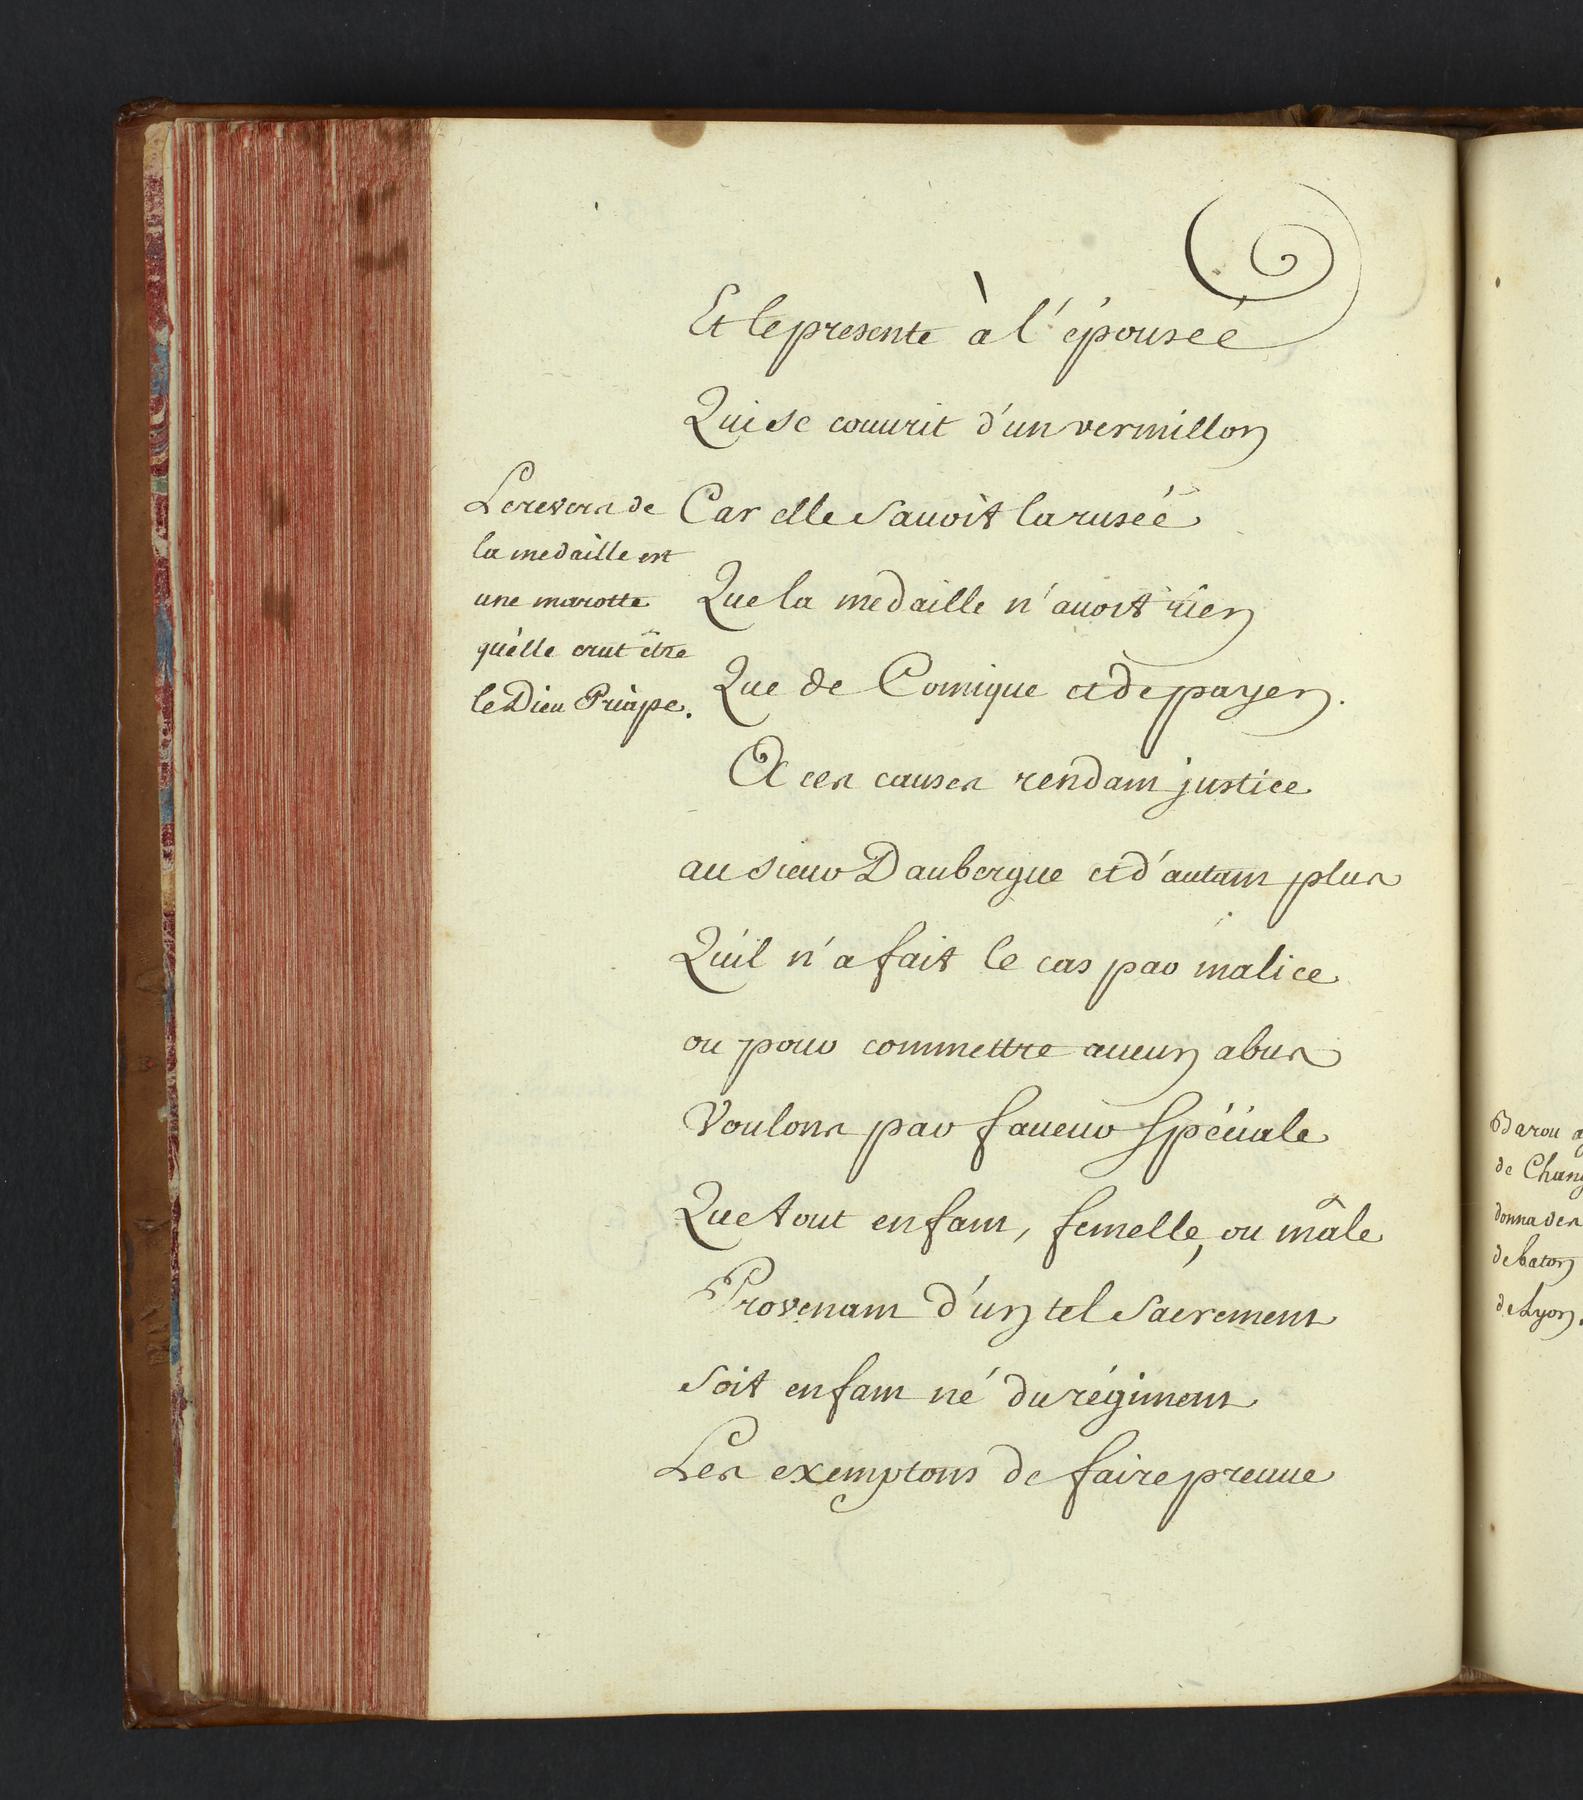 Et le presente à l'épouseé
Qui se couurit d'un vermillon
Car elle sauoit la ruseé
Que la medaille n'auoit rien
Que de Comique et de payen.
A ces causes rendant justice
au sieur Daubergue et d'autant plus
Qu'il n'a fait le cas par malice
ou pour commettre aucun abus
Voulons par faueur spéciale
Que tout enfant, femelle, ou mâle
Provenant d'un tel sacrement
soit enfant né du régiment
Les exemptons de faire preuue
Le revers de
la medaille est
une marotte
qu'elle crut être
le Dieu Priape.
Barou
de
donna des
de baton
de Lyon.